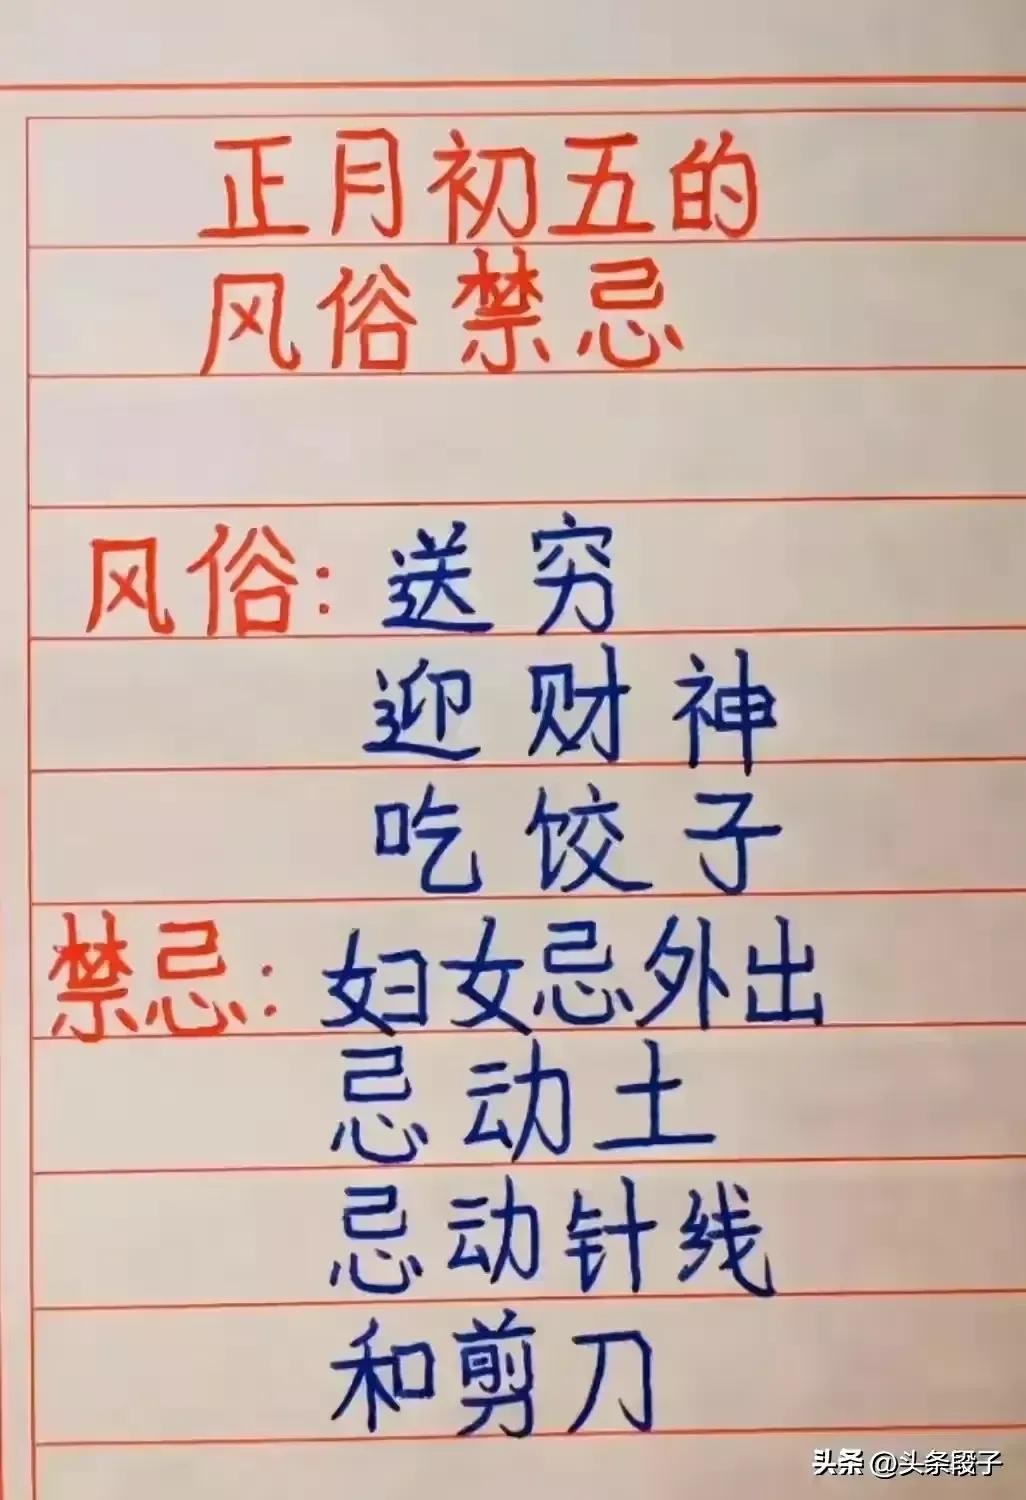 正月初五的
风俗禁忌
风俗:送穷
迎财神
吃饺子
禁忌:妇女忌外出
忌动土
忌动针线
和剪刀
头条 @头条段子